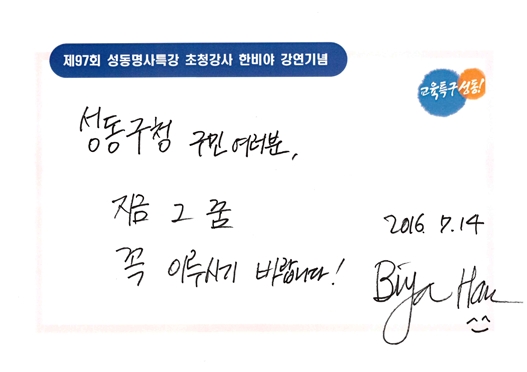 제97회 성동명사특강 초청강사 한비야 강연기념
교육특구 성동!
성동구청 구민 여러분,
지금 그 꿈
꼭 이루시기 바랍니다!
2016. 7. 14
Biya Han
^^